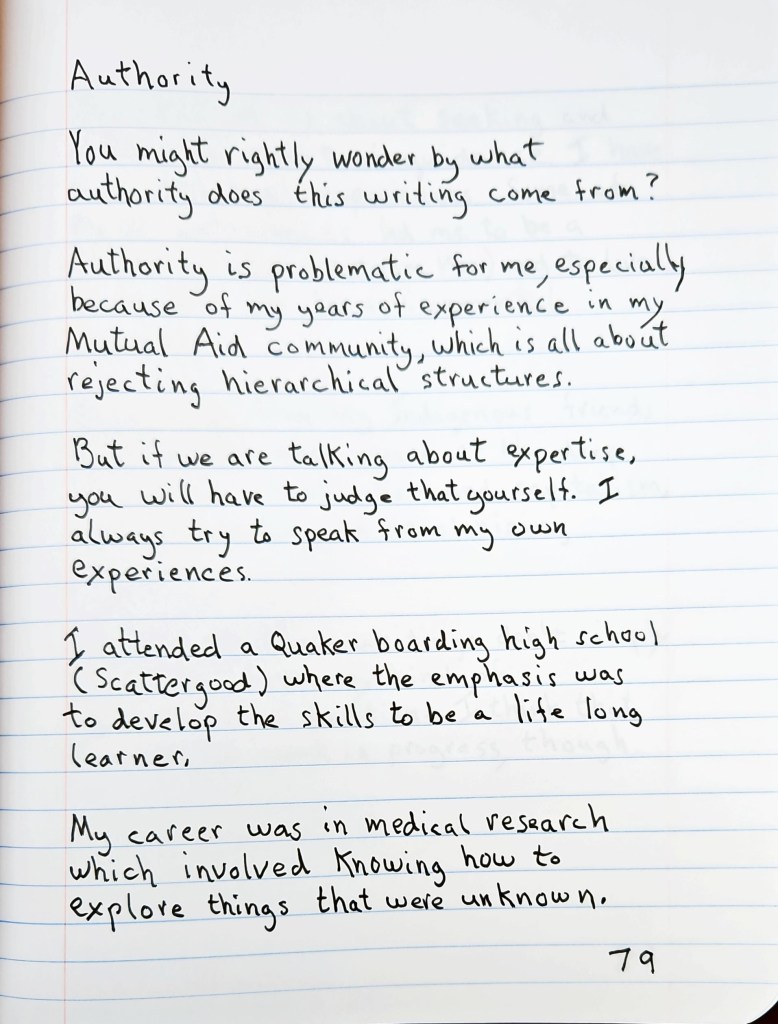 Authority
You might rightly wonder by what
authority does this writing come from?
Authority is problematic for me, especially
because of my years of experience in my
Mutual Aid community, which is all about
rejecting hierarchical structures.
But if we are talking about expertise,
you will have to judge that yourself. I
always try to speak from my own
experiences.
I attended a Quaker boarding high school
(Scattergood) where the emphasis was
to develop the skills to be a life long
learner.
My career was in medical research
which involved knowing how to
explore things that were unknown.
79